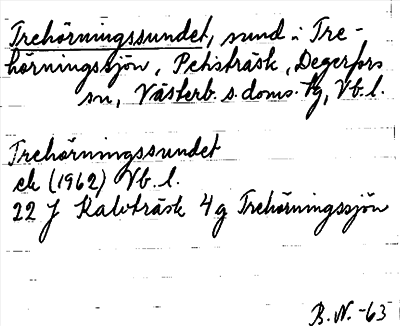 Trehörningssundet, sund i Tre-
hörningssjön, Petisträsk, Degerfors
sn, Västerb. s. doms. tg, Vb. l.
Trehörningssundet
ek (1962) Vb. l.
22 J Kalvträsk 4g Trehörningssjön
B. N. -63